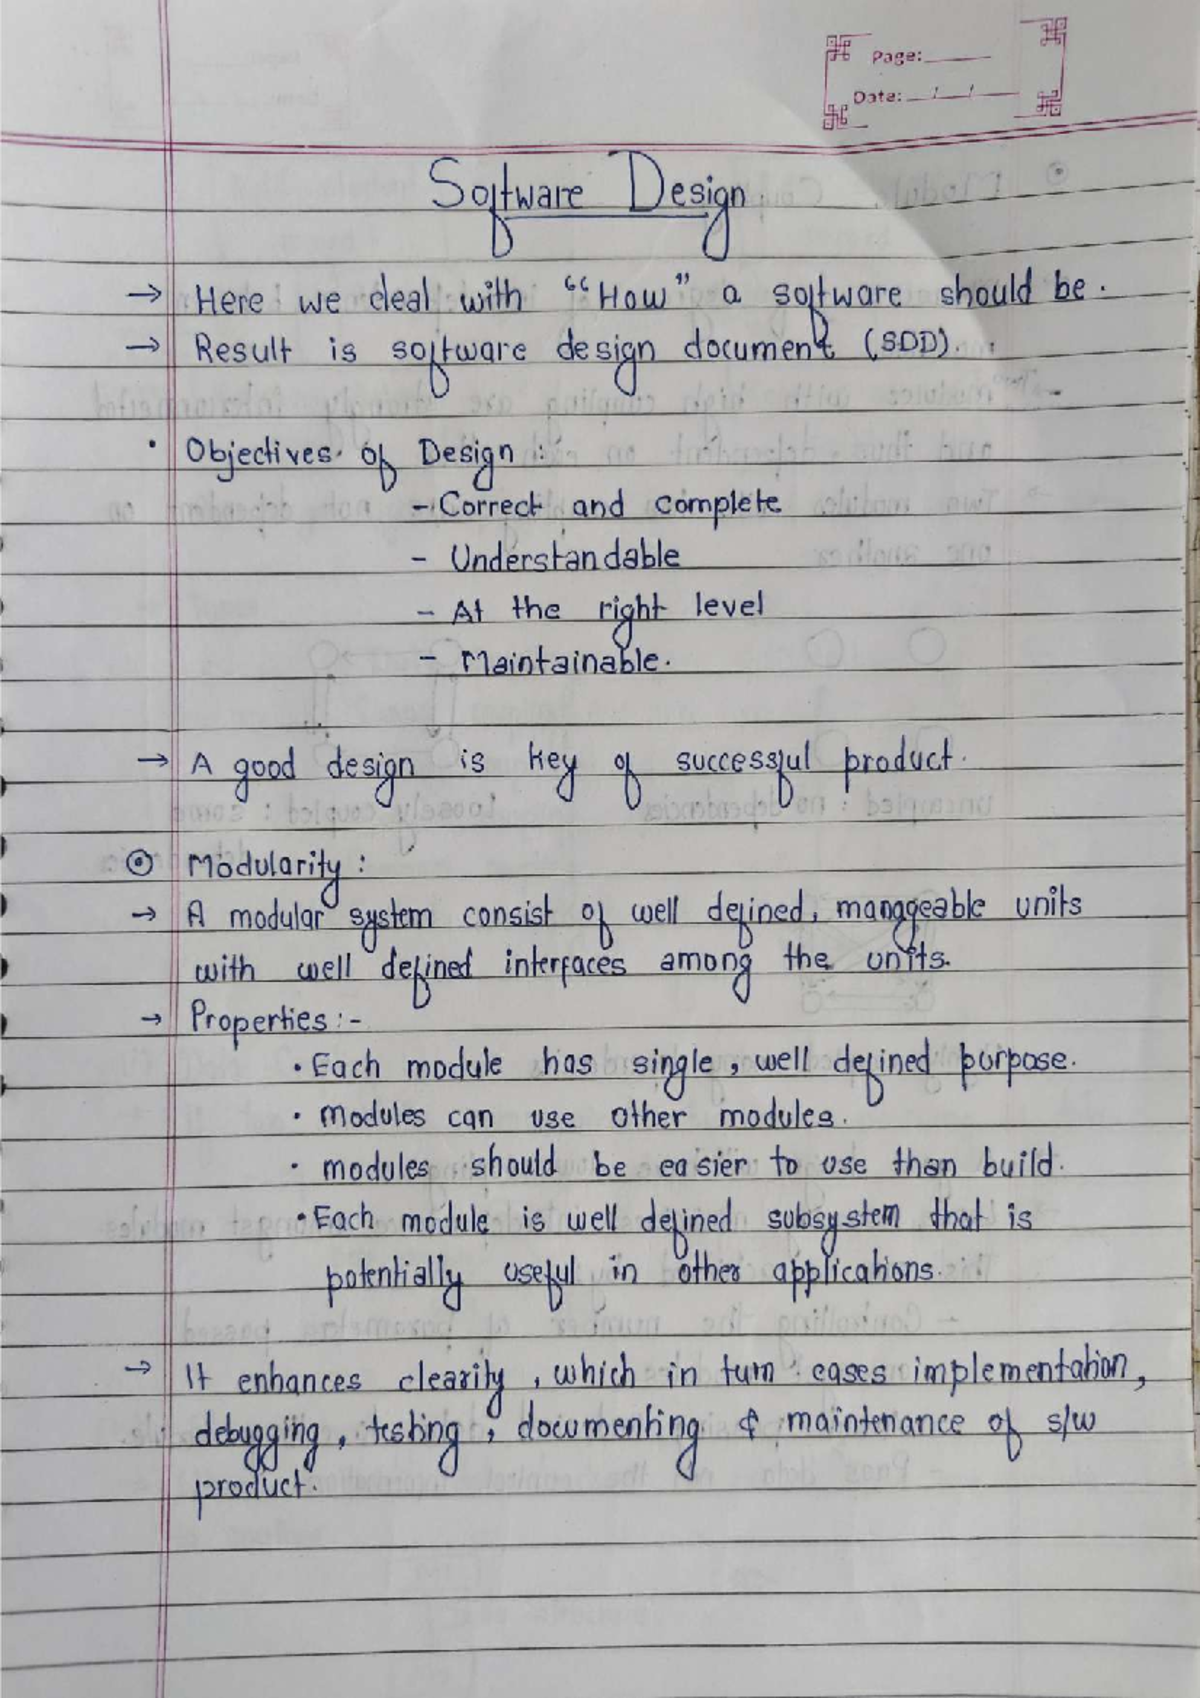 Page:
Date: / /
Software Design
→ Here we deal with "How" a software should be.
→ Result is software design document (SDD).
• Objectives of Design :
- Correct and complete
- Understandable
- At the right level
- Maintainable.
→ A good design is key of successful product.
⊙ Modularity :
→ A modular system consist of well defined, manageable units
with well defined interfaces among the units.
→ Properties :-
• Each module has single, well defined purpose.
• modules can use other modules.
• modules should be easier to use than build.
• Each module is well defined subsystem that is
potentially useful in other applications.
→ It enhances clearity, which in turn eases implementation,
debugging, testing, documenting & maintenance of s/w
product.